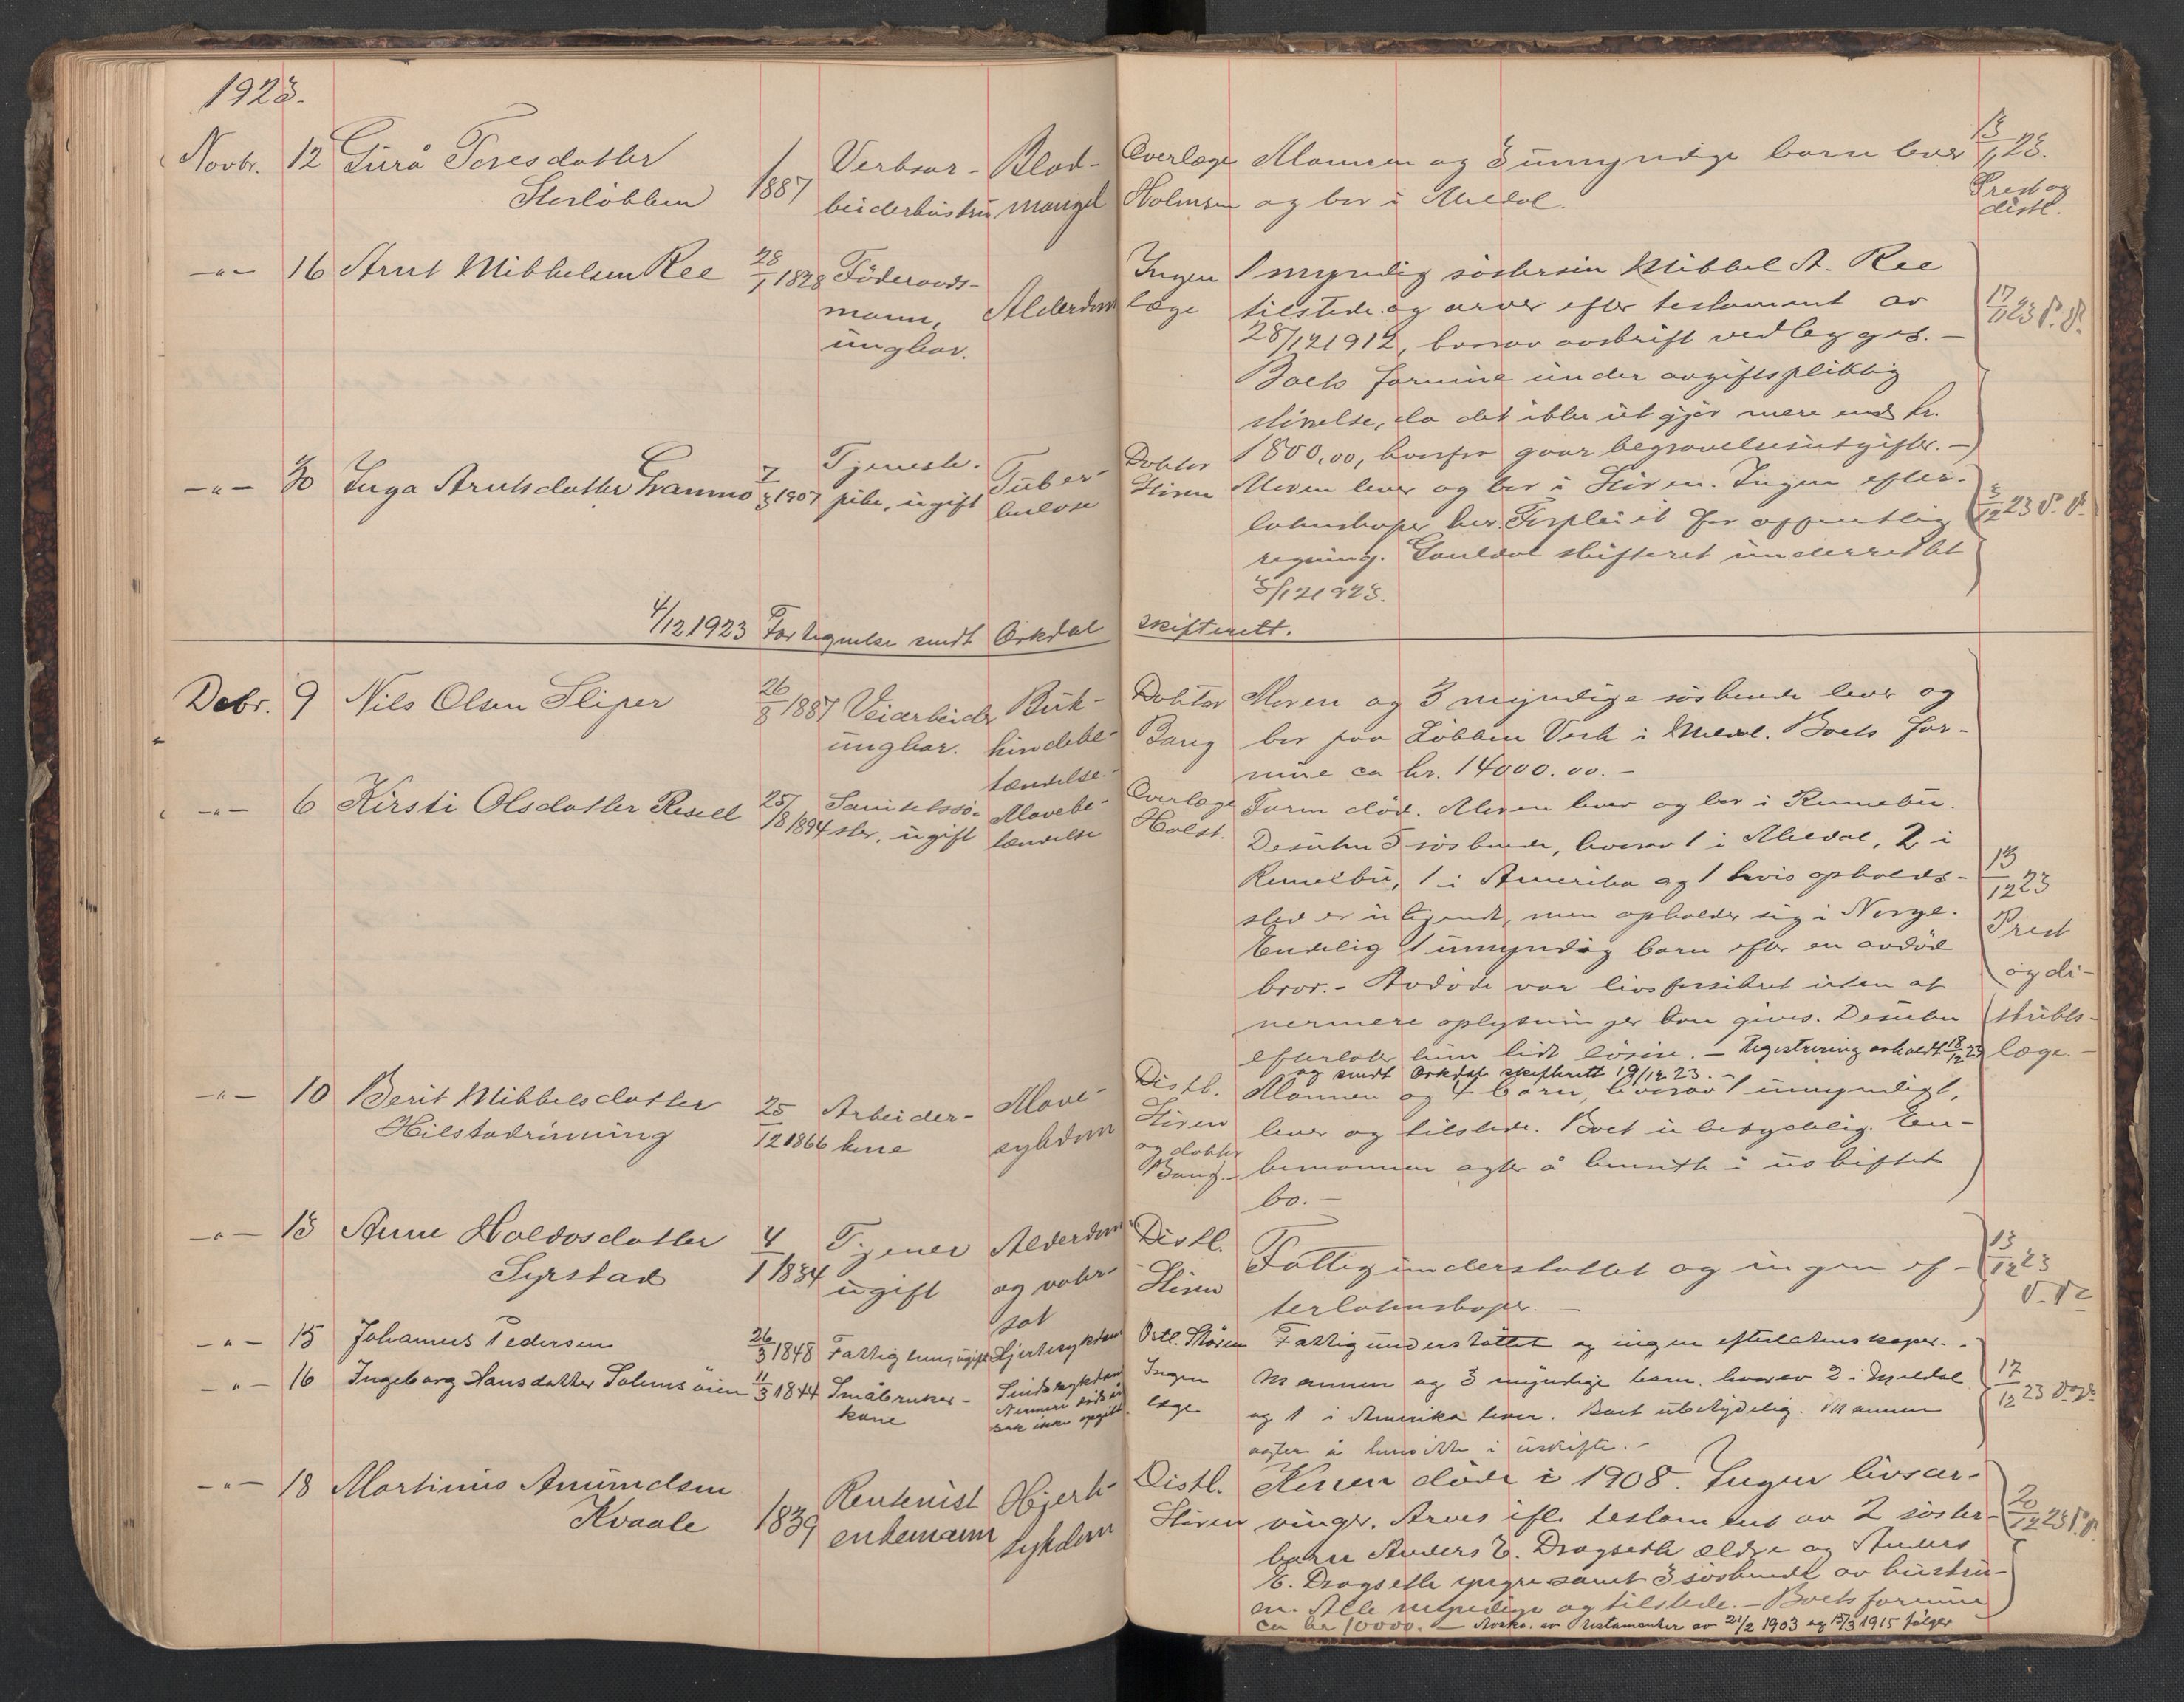 1923.
Novbr. 12 Gurå Toresdatter
Storløkken
1887
Verksar-
beiderhustru
Blod-
mangel
Overlæge
Holmsen
Mannen og 3 umyndige barn lever
og bor i Meldal.
13/11 23.
Prest og
distl.
-"- 16 Arnt Mikkelsen Ree
28/1 1828
Föderaads-
mann,
ungkar.
Alderdom
Ingen
læge
1 myndig söstersön Mikkel A. Ree
tilstede og arver efter testament av
28/12 1912, hvorav avskrift vedlegges. -
Boets formue under avgiftspliktig
störrelse, da det ikke utgjör mere end kr.
1800,00, hvorfra gaar begravelsesutgifter. -
17/11 23 P. P.
-"- 30 Inga Arntsdatter Gramno
7/3 1907
Tjeneste-
pike, ugift
Tuber-
kulose
Doktor
Stören
Moren lever og bor i Stören. Ingen efter-
latenskaper her. Forpleiet for offentlig
regning. Gauldal skifteret underrettet
3/12 1923.
3/12 23 P. P.
4/12 1923 Fortegnelse sendt Orkdal skifterett.
Debr. 9 Nils Olsen Sliper
26/8 1887
Veiarbeider
ungkar.
Buk-
hindebe-
tændelse. -
Doktor
Bang
Moren og 3 myndige söskende lever og
bor paa Løkken Verk i Meldal. Boets for-
mue ca kr. 14000.00. -
-"- 6 Kirsti Olsdatter Resell
25/8 1894
Sanitetssö-
ster, ugift
Mavebe-
tændelse
Overlæge
Holst.
Faren död. Moren lever og bor i Rennebu.
Desuten 5 söskende, hvorav 1 i Meldal, 2 i
Rennebu, 1 i Amerika og 1 hvis opholds-
sted er ukjendt, men opholder sig i Norge.
Endelig 1 umyndig barn efter en avdöd
bror. - Avdöde var livsforsikret uten at
nermere oplysninger kan gives. Desuten
efterlater hun lidt lösöre. - Registrering avholdt 18/12 23
og sendt Orkdal skifterett 19/12 23.
13/12 23
Prest
og di-
strikts-
læge. -
-"- 10 Berit Mikkelsdatter
Hilstadrönning
25/12 1866
Arbeider-
kone
Mave-
sykdom
Distl.
Stören
og doktor
Bang. -
Mannen og 4 barn, hvorav 1 umyndigt,
lever og tilstede. Boet ubetydelig. En-
kemannen agter å hensitte i uskiftet
bo. -
-"- 13 Anne Haldosdatter
Syrstad
4/1 1834
Tjener
ugift
Alderdom
og vater-
sot
Distl.
Stören
Fattigunderstöttet og ingen ef-
terlatenskaper. -
13/12 23
P. P.
-"- 15 Johannes Pedersen
26/3 1848
Fattiglem, ugift
Hjertesykdom
Dstl. Stören
Fattigunderstöttet og ingen efterlatenskaper. -
-"- 16 Ingeborg Hansdatter Solemsöien
11/3 1844
Småbruker-
kone
Sindssykdom
Nermere döds år-
sak ikke opgitt.
Ingen
lege
Mannen og 3 myndige barn, hvorav 2 i Meldal
og 1 i Amerika lever. Boet ubetydelig. Mannen
agter å hensitte i uskifte. -
17/12 23
-"- 18 Martinus Amundsen
Kvaale
1839
Rentenist
enkemann
Hjerte-
sykdom
Distl.
Stören
Konen döde i 1908. Ingen livsar-
vinger. Arves ifl. testament av 2 söster-
barn Anders E. Dragseth ældre og Anders
E. Dragseth yngre samt 3 söskende av hustru-
en. Alle myndige og tilstede. - Boets formue
ca kr 10000. - Avskr. av testamenter av 21/2 1903 og 15/3 1915 følger
20/12 23 P. P.